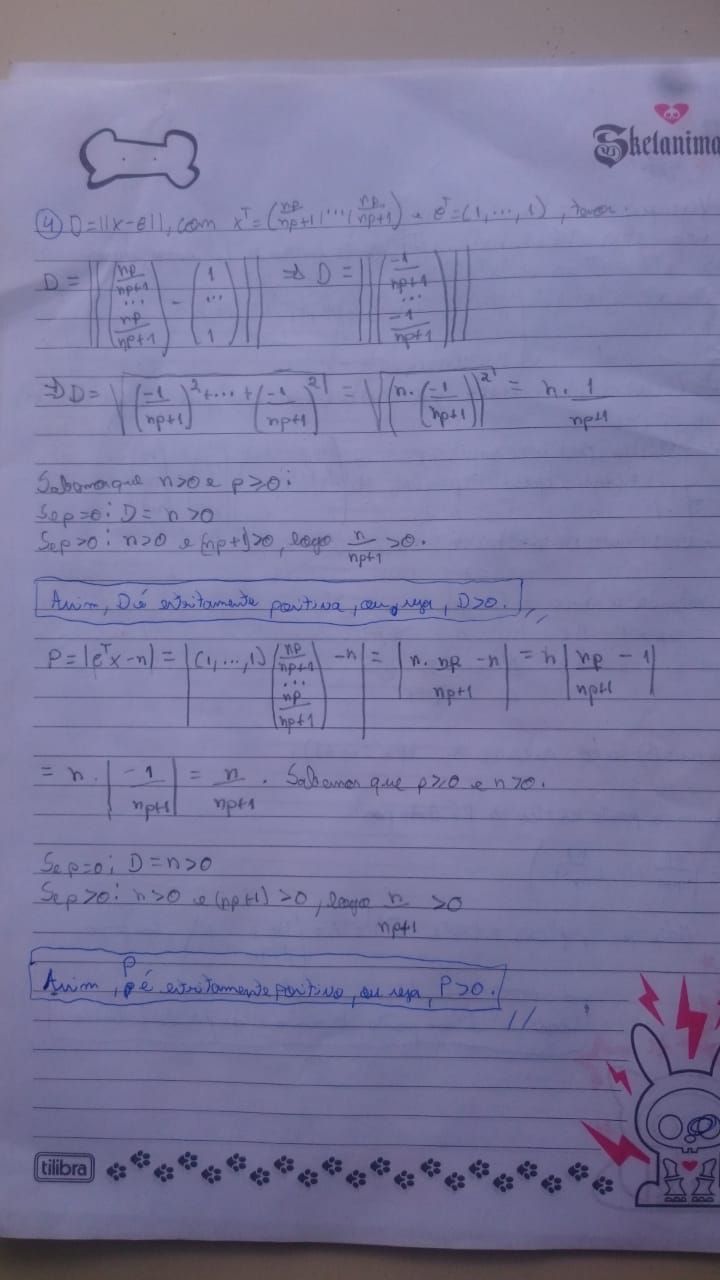 Skelanima
④ D=||x-e||, com x^T=(np/np+1,...,np/np+1) e e^T=(1,...,1), temos:
D = ||(np/np+1 ... np/np+1) - (1 ... 1)|| ⇒ D = ||(-1/np+1 ... -1/np+1)||
⇒ D = √((-1/np+1)²+...+(-1/np+1)²) = √(n.(-1/np+1))² = n. 1/np+1
Sabemos que n>0 e p≥0:
Se p=0: D = n>0
Se p>0: n>0 e (np+1)>0, logo n/np+1 >0.
Assim, D é estritamente positiva, ou seja, D>0. //
P = |e^T x-n| = |(1,...,1)(np/np+1 ... np/np+1) -n| = |n. np/np+1 -n| = n|np/np+1 - 1|
= n. |-1/np+1| = n/np+1 . Sabemos que p≥0 e n>0.
Se p=0: D=n>0
Se p>0: n>0 e (np+1)>0, logo n/np+1 >0
Assim, P é estritamente positivo, ou seja, P>0. //
tilibra